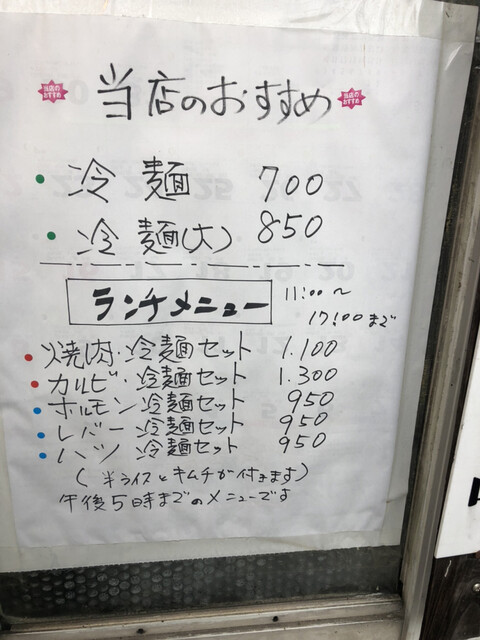 当店のおすすめ
当店のおすすめ
当店のおすすめ
・冷麺 700
・冷麺(大) 850
ランチメニュー 11:00〜
17:00まで
・焼肉・冷麺セット 1.100
・カルビ・冷麺セット 1.300
・ホルモン冷麺セット 950
・レバー冷麺セット 950
・ハツ 冷麺セット 950
(半ライスとキムチが付きます)
午後5時までのメニューです